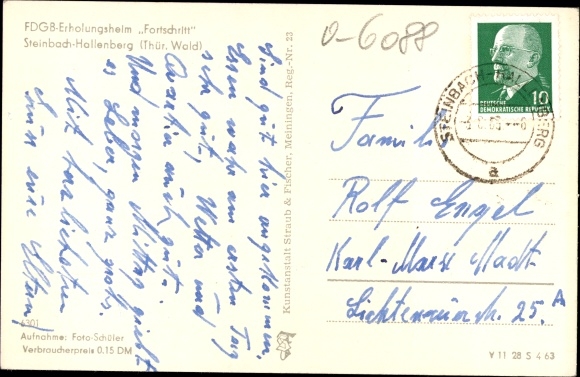 FDGB-Erholungsheim „Fortschritt"
Steinbach-Hallenberg (Thür. Wald)
Sind gut hier angekommen,
Essen war am ersten Tag
sehr gut, Wetter und
auch gut.
Und morgen Mittag giebt
es Leber, ganz groß.
Mit herzlichsten
Eltern!
6301
Aufnahme: Foto-Schüler
Verbraucherpreis 0.15 DM
Kunstanstalt Straub & Fischer, Meiningen, Reg.-Nr. 23
0-6088
10
DEUTSCHE
DEMOKRATISCHE REPUBLIK
STEINBACH-HALLENBERG
a
Familie
Rolf Engel
Karl-Marx Stadt
25. A
V 11 28 S 4 63